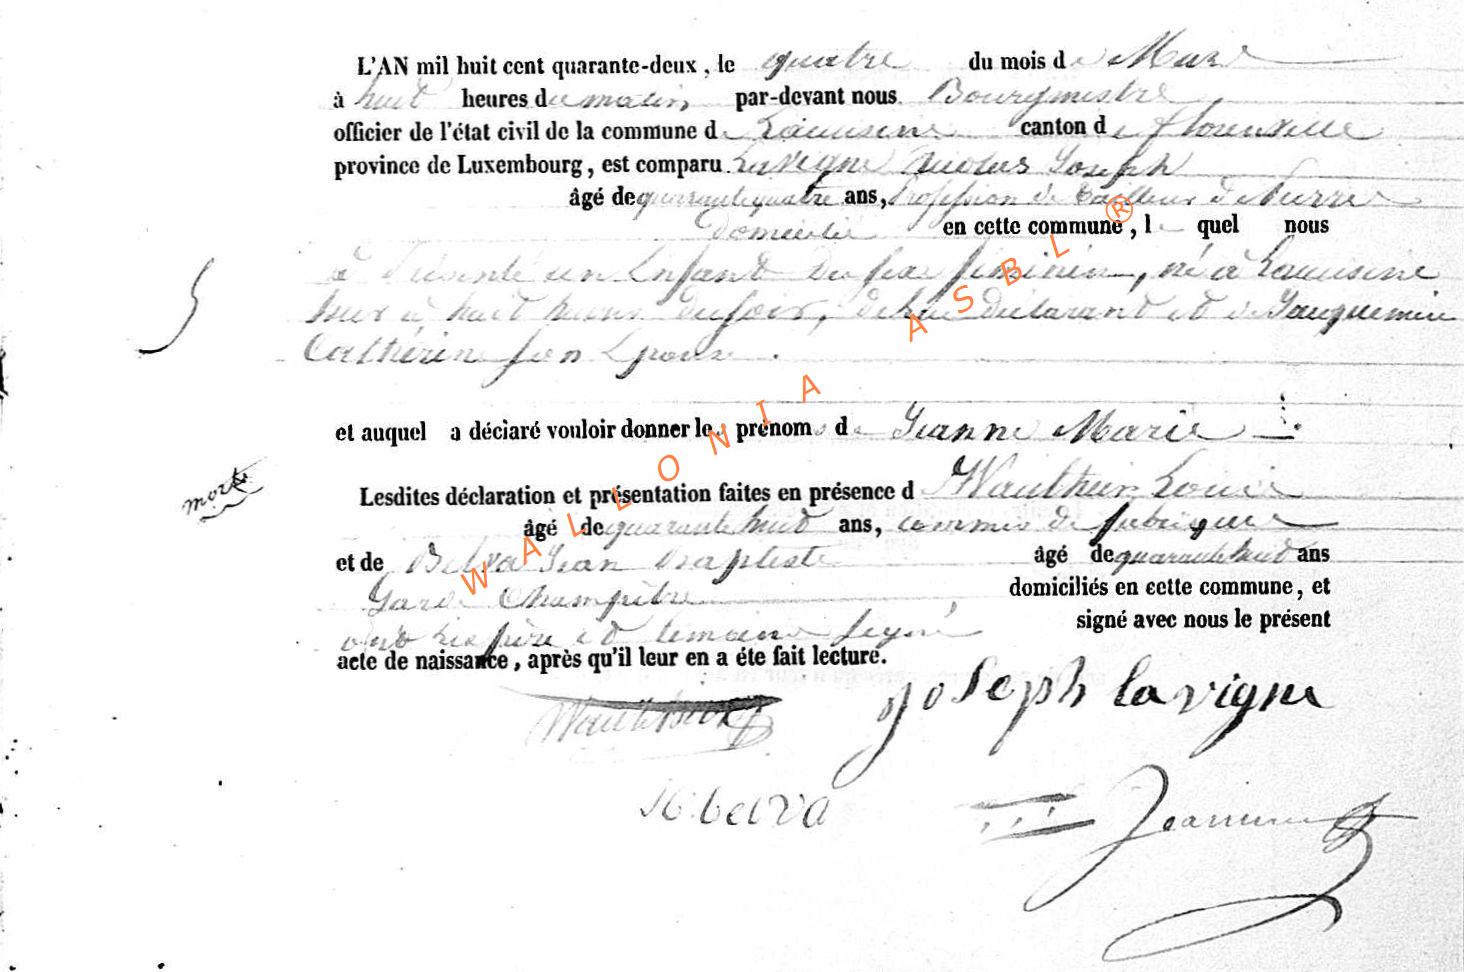 L'AN mil huit cent quarante-deux, le quatre du mois de Mars
à huit heures du matin par-devant nous Bourgmestre
officier de l'état civil de la commune de Lacuisine canton de florenville
province de Luxembourg, est comparu Lavigne Nicolas Joseph
âgé de quarante quatre ans, Profession de tailleur de Pierre
domicilié en cette commune, lequel nous
à Présenté un Enfant du sexe féminin, né à Lacuisine
hier à huit heures du soir, de lui déclarant et de Jacquemin
Cathérine son Epouse.
et auquel a déclaré vouloir donner les prénoms de Jeanne Marie
morte
Lesdites déclaration et présentation faites en présence de Wauthier Louis
âgé de quarante huit ans, commis de fabrique
et de Belva Jean Baptiste âgé de quarante huit ans
Garde Champêtre domiciliés en cette commune, et
ont les père et témoins signé avec nous le présent
acte de naissance, après qu'il leur en a éte fait lecture.
joseph lavigne
belva
WALLONIA ASBL ®